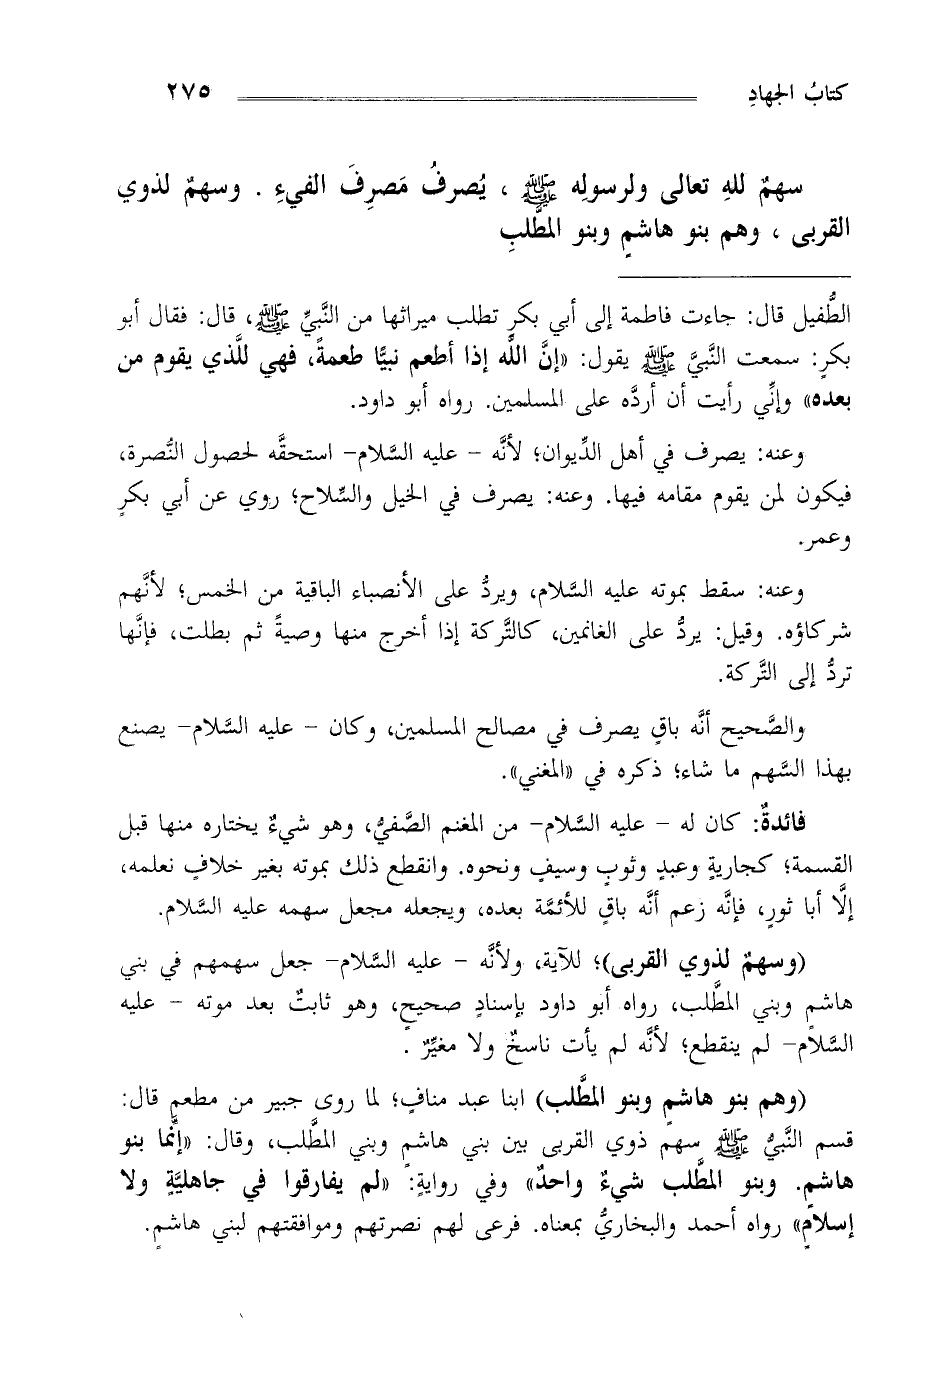 كتابُ الجهادِ ٢٧٥
سهمٌ للهِ تعالى ولرسولِه ﷺ ، يُصرفُ مَصرِفَ الفيءِ . وسهمٌ لذوي
القربى ، وهم بنو هاشمٍ وبنو المطَّلبِ
الطُّفيل قال: جاءت فاطمة إلى أبي بكرٍ تطلب ميراثها من النَّبيِّ ﷺ، قال: فقال أبو
بكرٍ: سمعت النَّبيَّ ﷺ يقول: «إنَّ اللَّه إذا أطعم نبيًّا طعمةً، فهي للَّذي يقوم من
بعده» وإنِّي رأيت أن أردَّه على المسلمين. رواه أبو داود.
وعنه: يصرف في أهل الدِّيوان؛ لأنَّه - عليه السَّلام- استحقَّه لحصول النُّصرة،
فيكون لمن يقوم مقامه فيها. وعنه: يصرف في الخيل والسِّلاح؛ روي عن أبي بكرٍ
وعمر.
وعنه: سقط بموته عليه السَّلام، ويردُّ على الأنصباء الباقية من الخمس؛ لأنَّهم
شركاؤه. وقيل: يردُّ على الغانمين، كالتَّركة إذا أخرج منها وصيةً ثم بطلت، فإنَّها
تردُّ إلى التَّركة.
والصَّحيح أنَّه باقٍ يصرف في مصالح المسلمين، وكان - عليه السَّلام- يصنع
بهذا السَّهم ما شاء؛ ذكره في «المغني».
فائدةٌ: كان له - عليه السَّلام- من المغنم الصَّفيُّ، وهو شيءٌ يختاره منها قبل
القسمة؛ كجاريةٍ وعبدٍ وثوبٍ وسيفٍ ونحوه. وانقطع ذلك بموته بغير خلافٍ نعلمه،
إلَّا أبا ثورٍ، فإنَّه زعم أنَّه باقٍ للأئمَّة بعده، ويجعله مجعل سهمه عليه السَّلام.
(وسهمٌ لذوي القربى)؛ للآية، ولأنَّه - عليه السَّلام- جعل سهمهم في بني
هاشمٍ وبني المطَّلب، رواه أبو داود بإسنادٍ صحيحٍ، وهو ثابتٌ بعد موته - عليه
السَّلام- لم ينقطع؛ لأنَّه لم يأت ناسخٌ ولا مغيِّرٌ .
(وهم بنو هاشمٍ وبنو المطَّلب) ابنا عبد منافٍ؛ لما روى جبير من مطعمٍ قال:
قسم النَّبيُّ ﷺ سهم ذوي القربى بين بني هاشمٍ وبني المطَّلب، وقال: «إنَّما بنو
هاشمٍ. وبنو المطَّلب شيءٌ واحدٌ» وفي روايةٍ: «لم يفارقوا في جاهليَّةٍ ولا
إسلامٍ» رواه أحمد والبخاريُّ بمعناه. فرعى لهم نصرتهم وموافقتهم لبني هاشمٍ.